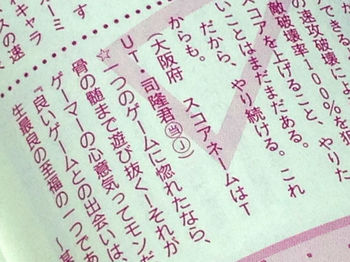 ミー
キャラ
スの速
す
の速攻破壊によ
ができる
敵破壊率100%を狙
スコアを上げること、やりた
いことはまだまだある。これ
だから、やり続ける。
からも。
(大阪府 スコアネームはT
U― 司隆君 当 J)
☆一つのゲームに惚れたなら、
骨の髄まで遊び抜く―それが
ゲーマーの心意気ってモンだ
『良いゲームとの出会いは、
生最良の至福の一つであ